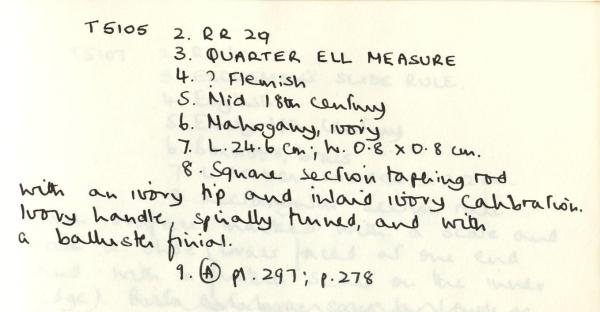 T5105 2. RR 29
3. QUARTER ELL MEASURE
4. ? Flemish
5. Mid 18th century
6. Mahogany, ivory
7. L. 24.6 cm; W. 0.8 x 0.8 cm.
8. Square section tapering rod
with an ivory tip and inlaid ivory calibration.
Ivory handle, spirally turned, and with
a balluster finial.
9. (A) pl. 297; p. 278